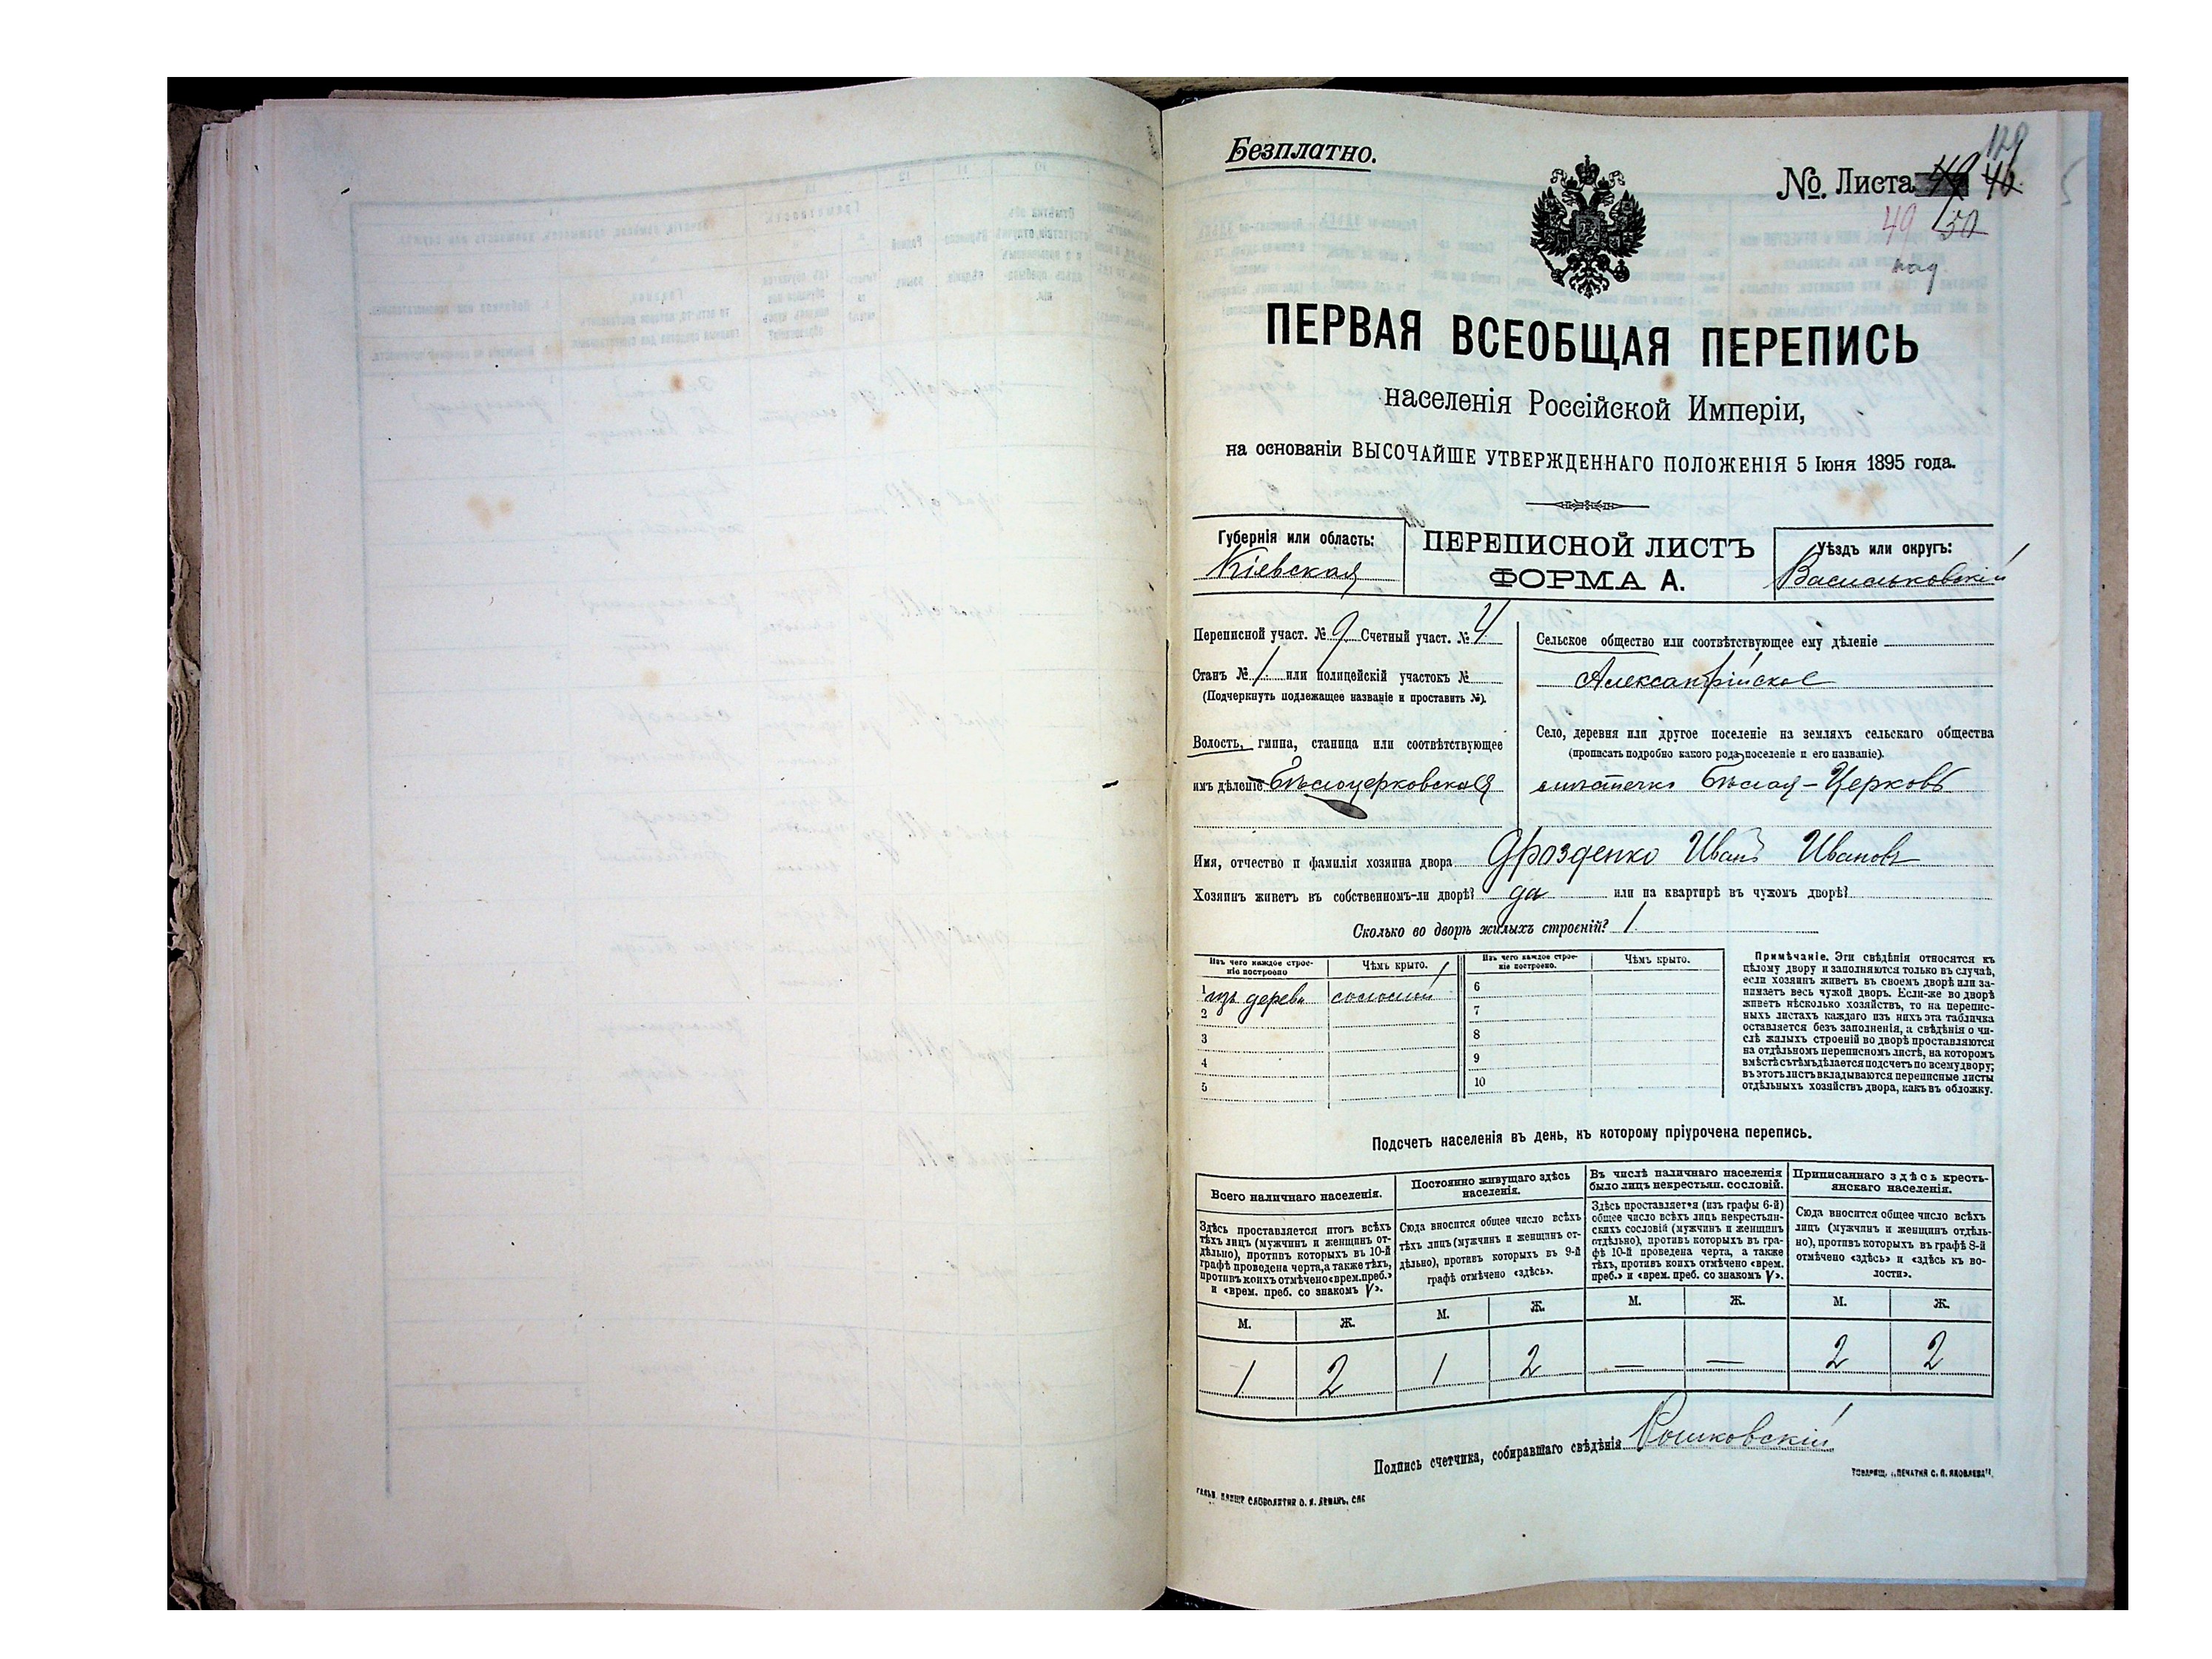 Безплатно.
129
№. Листа 49 46
49 50
ПЕРВАЯ ВСЕОБЩАЯ ПЕРЕПИСЬ
населенія Россійской Имперіи,
на основаніи ВЫСОЧАЙШЕ УТВЕРЖДЕННАГО ПОЛОЖЕНІЯ 5 Іюня 1895 года.
Губернія или область:
Кіевская
ПЕРЕПИСНОЙ ЛИСТЪ
ФОРМА А.
Уѣздъ или округъ:
Васильковскій
Переписной участ. № 9 Счетный участ. № 4
Станъ № 1 или полицейскій участокъ №
(Подчеркнуть подлежащее названіе и проставить №).
Волость, гмина, станица или соотвѣтствующее
имъ дѣленіе Бѣлоцерковская
Сельское общество или соотвѣтствующее ему дѣленіе
Александрійское
Село, деревня или другое поселеніе на земляхъ сельскаго общества
(прописать подробно какого рода поселеніе и его названіе).
мѣстечко Бѣлая-Церковь
Имя, отчество и фамилія хозяина двора Дрозденко Иванъ Ивановъ
Хозяинъ живетъ въ собственномъ-ли дворѣ? да или на квартирѣ въ чужомъ дворѣ?
Сколько во дворѣ жилыхъ строеній? 1
Изъ чего каждое строе-
ніе построено
Чѣмъ крыто.
Изъ чего каждое строе-
ніе построено.
Чѣмъ крыто.
1 изъ дерева соломой
2
3
4
5
6
7
8
9
10
Примѣчаніе. Эти свѣдѣнія относятся къ
цѣлому двору и заполняются только въ случаѣ,
если хозяинъ живетъ въ своемъ дворѣ или за-
нимаетъ весь чужой дворъ. Если-же во дворѣ
живетъ нѣсколько хозяйствъ, то на перепис-
ныхъ листахъ каждаго изъ нихъ эта табличка
оставляется безъ заполненія, а свѣдѣнія о чи-
слѣ жилыхъ строеній во дворѣ проставляются
на отдѣльномъ переписномъ листѣ, на которомъ
вмѣстѣ съ тѣмъ дѣлается подсчетъ по всему двору;
въ этотъ листъ вкладываются переписные листы
отдѣльныхъ хозяйствъ двора, какъ въ обложку.
Подсчетъ населенія въ день, къ которому пріурочена перепись.
Всего наличнаго населенія.
Здѣсь проставляется итогъ всѣхъ
тѣхъ лицъ (мужчинъ и женщинъ от-
дѣльно), противъ которыхъ въ 10-й
графѣ проведена черта, а также тѣхъ,
противъ коихъ отмѣчено «врем. преб.»
и «врем. преб. со знакомъ V».
Постоянно живущаго здѣсь
населенія.
Сюда вносится общее число всѣхъ
тѣхъ лицъ (мужчинъ и женщинъ от-
дѣльно), противъ которыхъ въ 9-й
графѣ отмѣчено «здѣсь».
Въ числѣ наличнаго населенія
было лицъ некрестьян. сословій.
Здѣсь проставляется (изъ графы 6-й)
общее число всѣхъ лицъ некрестьян-
скихъ сословій (мужчинъ и женщинъ
отдѣльно), противъ которыхъ въ гра-
фѣ 10-й проведена черта, а также
тѣхъ, противъ коихъ отмѣчено «врем.
преб.» и «врем. преб. со знакомъ V».
Приписаннаго здѣсь кресть-
янскаго населенія.
Сюда вносится общее число всѣхъ
лицъ (мужчинъ и женщинъ отдѣль-
но), противъ которыхъ въ графѣ 8-й
отмѣчено «здѣсь» и «здѣсь къ во-
лости».
М. Ж. М. Ж. М. Ж. М. Ж.
1 2 1 2 — — 2 2
Подпись счетчика, собиравшаго свѣдѣнія Рошковскій
ТОВАРИЩ. „ПЕЧАТНЯ С. П. ЯКОВЛЕВА".
СЛОВОЛИТНЯ О. И. ЛЕМАНЪ, СПБ